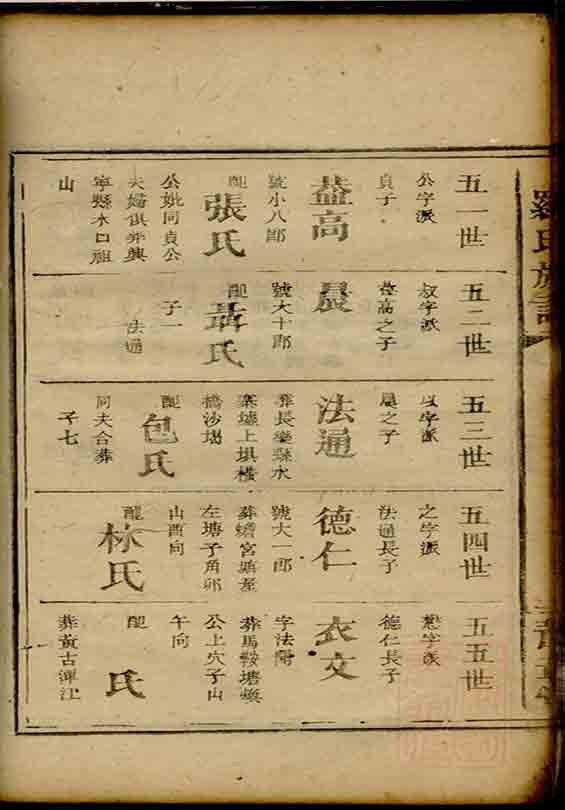 羅氏族譜
五一世
公字派
貞子
益高
號小八郎
配
張氏
公妣同貞公
夫婦俱葬興
寧縣水口祖
山
五二世
叔字派
益高之子
晨
號大十郎
配
聶氏
子一
法通
五三世
以字派
晨之子
法通
葬長樂縣水
寨墟上埧樓
橋沙場
配
包氏
同夫合葬
子七
五四世
之字派
法通長子
德仁
號大一郎
左塘子角卯
山酉向
配
林氏
五五世
德仁長子
衣文
公上穴子山
午向
配
氏